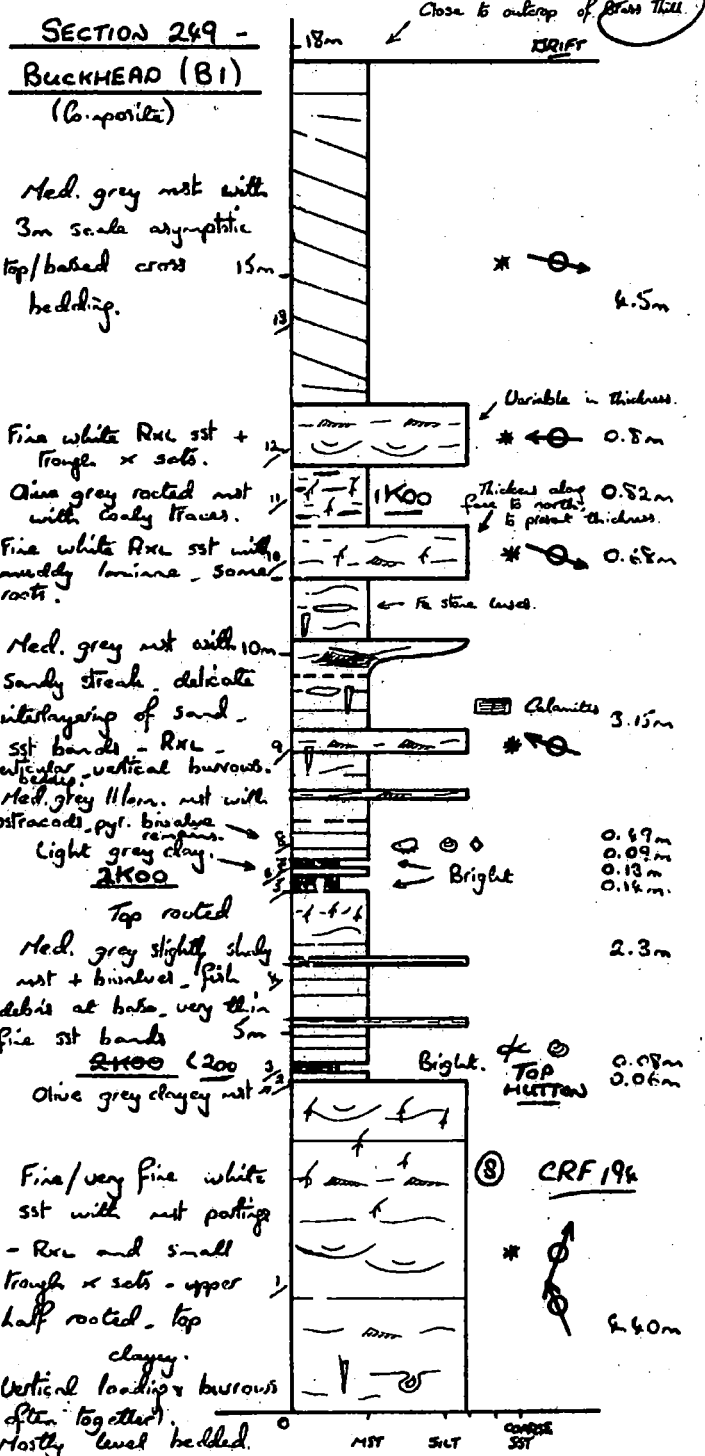 SECTION 249 -
BUCKHEAD (B1)
(Composite)
18m
Close to outcrop of Brass Thill
DRIFT
Med. grey mst with
3m scale asymptotic
top/based cross
bedding.
15m
13
4.5m
Variable in thickness.
Fine white RxL sst +
trough x sets.
12
0.8m
Olive grey rooted mst
with coaly traces.
11
1K00
Thickens along
face to north,
to present thickness.
0.82m
Fine white RxL sst with
muddy laminae, some
roots.
10
0.68m
Fe stone lenses.
Med. grey mst with
sandy streak, delicate
interlayering of sand -
sst bands - RxL -
lenticular bedding, vertical burrows.
10m
9
Calamites
3.15m
Med. grey lam. mst with
ostracods, pyr. bivalve
remains.
8
0.49m
Light grey clay.
7
0.09m
6
0.13m
2K00
5
Bright
0.14m
Top rooted
Med. grey slightly shaly
mst + bivalves, fish
debris at base, very thin
fine sst bands
4
2.3m
5m
2K00 L200
3
Bright.
TOP
HUTTON
0.08m
Olive grey clayey mst
2
0.06m
8
CRF 194
Fine/very fine white
sst with mst partings
- RxL and small
trough x sets - upper
half rooted, top
clayey.
1
4.40m
Vertical loading & burrows
often together.
Mostly level bedded.
0
MST
SILT
COARSE
SST